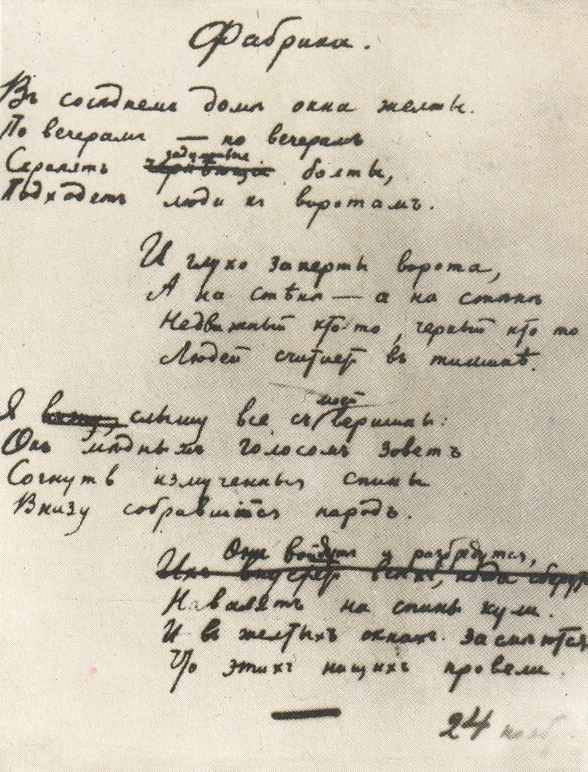 Фабрика.
Въ сосѣднемъ домѣ окна желты.
По вечерамъ — по вечерамъ
задумчивые
Скрипятъ болты,
Подходятъ люди къ воротамъ.
И глухо заперты ворота,
А на стѣнѣ — а на стѣнѣ
Недвижный кто-то, черный кто то
Людей считаетъ въ тишинѣ.
моей
Я слышу все съ вершины:
Онъ мѣднымъ голосомъ зоветъ
Согнуть измученныя спины
Внизу собравшійся народъ.
Они войдутъ и разбредутся,
Навалятъ на спины кули.
И въ желтыхъ окнахъ засмѣются,
Что этихъ нищихъ провели.
24 нояб.